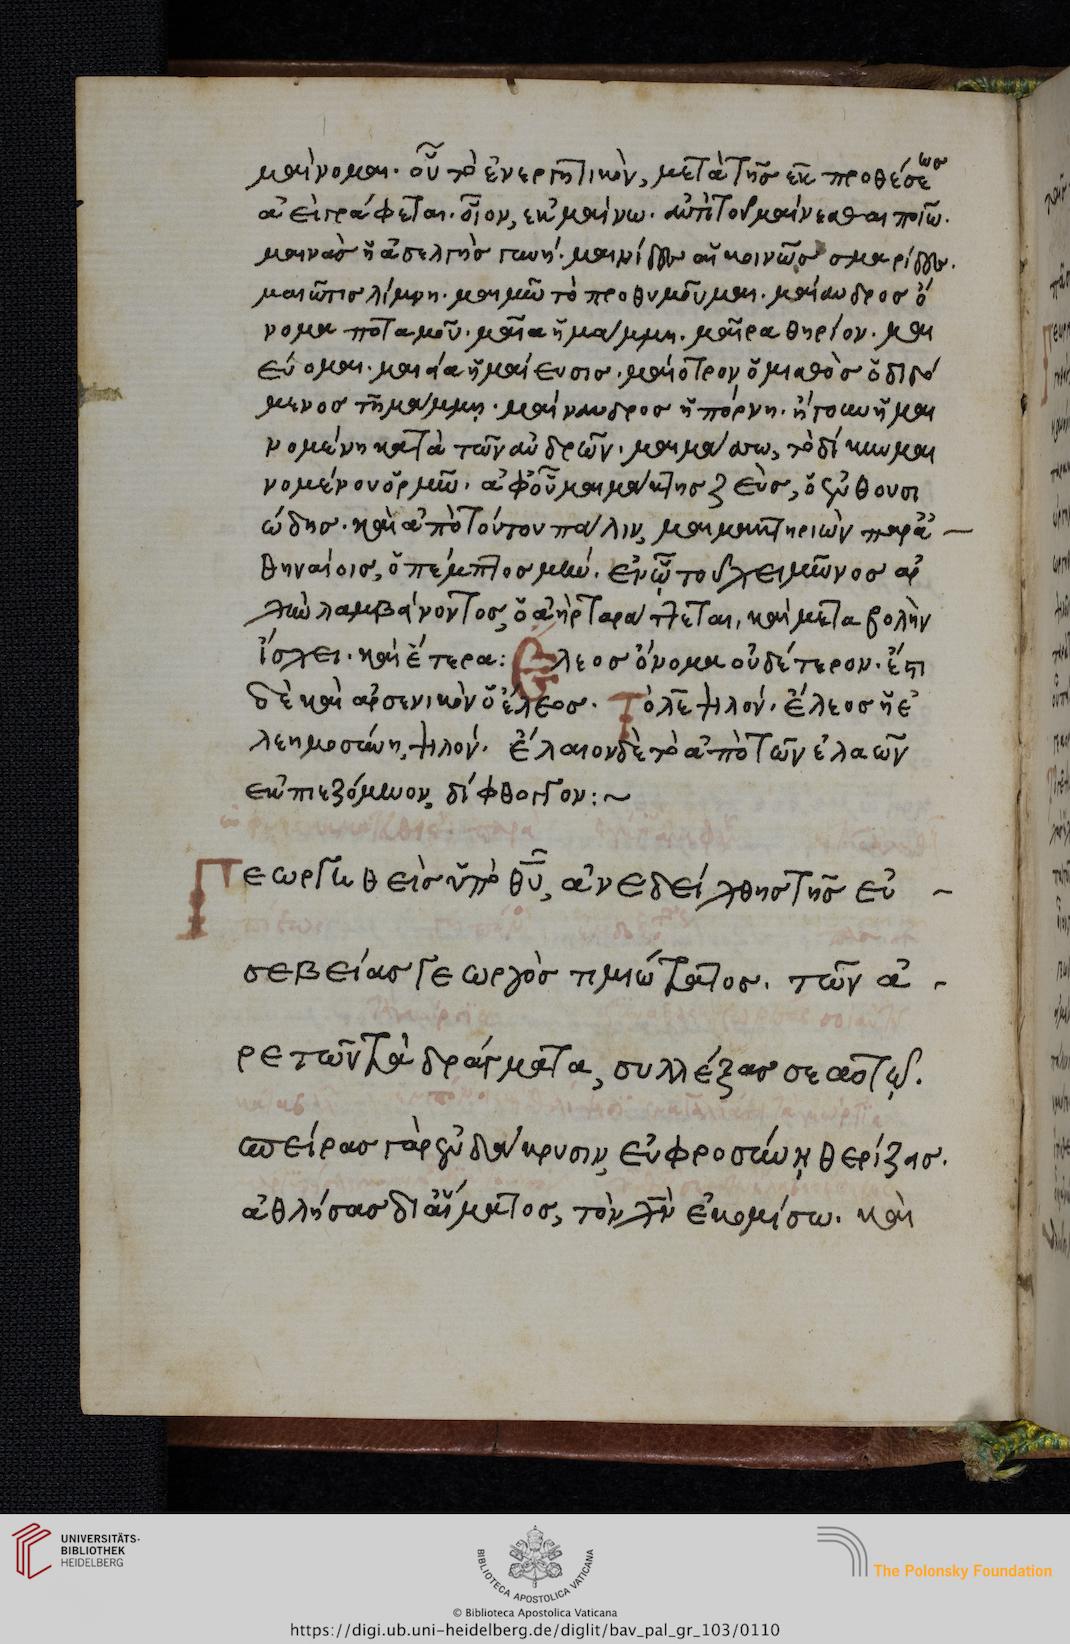 μαίνομαι· οὗ τὸ ἐνεργητικὸν, μετὰ τῆς ἐκ προθέσεως
αει γράφεται· οἷον, ἐκμαίνω· ἀντὶ τοῦ μαίνεσθαι ποιῶ·
μαινὰς ἡ ἀσελγὴς γυνή· μαινίδες αἱ κοινῶς σμαρίδες.
μαιῶτις λίμνη· μαιμῶ τὸ προθυμοῦμαι· μαίανδρος ὄ
νομα ποταμοῦ· μαῖα ἡ μάμμη· μαῖρα θηρίον· μαι
εύομαι· μαιεία ἡ μαίευσις· μαίοτρον ὁ μισθὸς ὁ διδό
μενος τῇ μάμμῃ· μαίνανδρος ἡ πόρνη· ἤγουν ἡ μαι
νομένη κατὰ τῶν ἀνδρῶν· μαιμάσσω, τὸ δίκην μαι
νομένου ὁρμῶ· ἀφ' οὗ μαιμάκτης ζεὺς, ὁ ἐνθουσι
ώδης· καὶ ἀπὸ τούτου πάλιν, μαιμακτηριὼν παρ' ἀ
θηναίοις, ὁ πέμπτος μήν· ἐν ᾧ τοῦ χειμῶνος ἀρ
χὴν λαμβάνοντος, ὁ ἀὴρ ταράττεται, καὶ μεταβολὴν
ἴσχει· καὶ ἕτερα: Ἔλεος ὄνομα οὐδέτερον· ἔστι
δὲ καὶ ἀρσενικὸν ὁ ἔλεος· Τὸ λε ψιλόν· ἔλεος ἡ ἐ
λεημοσύνη, ψιλόν· ἔλαιον δὲ τὸ ἀπὸ τῶν ἐλαιῶν
ἐκπιεζόμενον, δίφθογγον:~
Γεωργηθεὶς ὑπὸ θυ, ἀνεδείχθης τῆς εὐ
σεβείας γεωργὸς τιμιώτατος· τῶν ἀ
ρετῶν τὰ δράγματα, συλλέξας σεαυτῷ.
σπείρας γὰρ ἐν δάκρυσιν, εὐφροσύνῃ θερίζεις.
ἀθλήσας δι' αἵματος, τὸν χν ἐκομίσω· καὶ
UNIVERSITÄTS-
BIBLIOTHEK
HEIDELBERG
BIBLIOTECA APOSTOLICA VATICANA
The Polonsky Foundation
© Biblioteca Apostolica Vaticana
https://digi.ub.uni-heidelberg.de/diglit/bav_pal_gr_103/0110